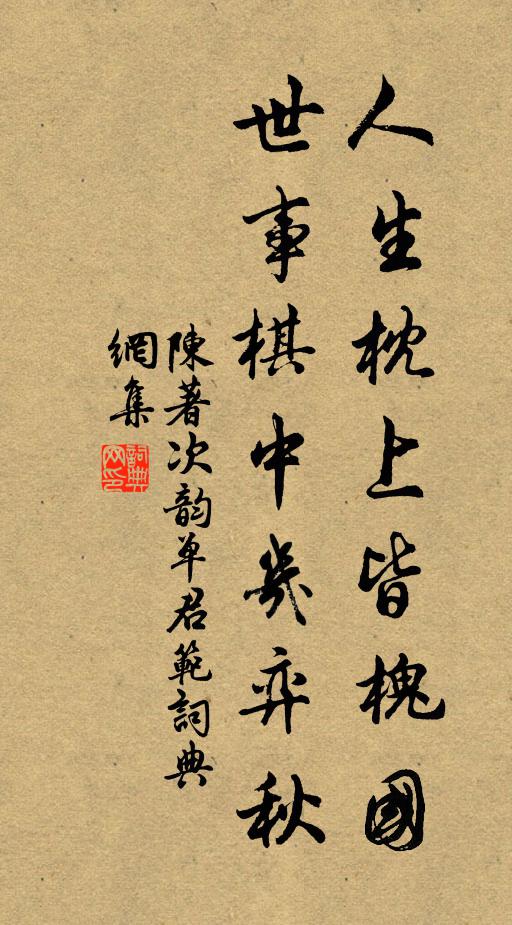 人生枕上皆槐國
世事棋中幾弈秋
陳著次韵单君範詞典
網集
詞典网印